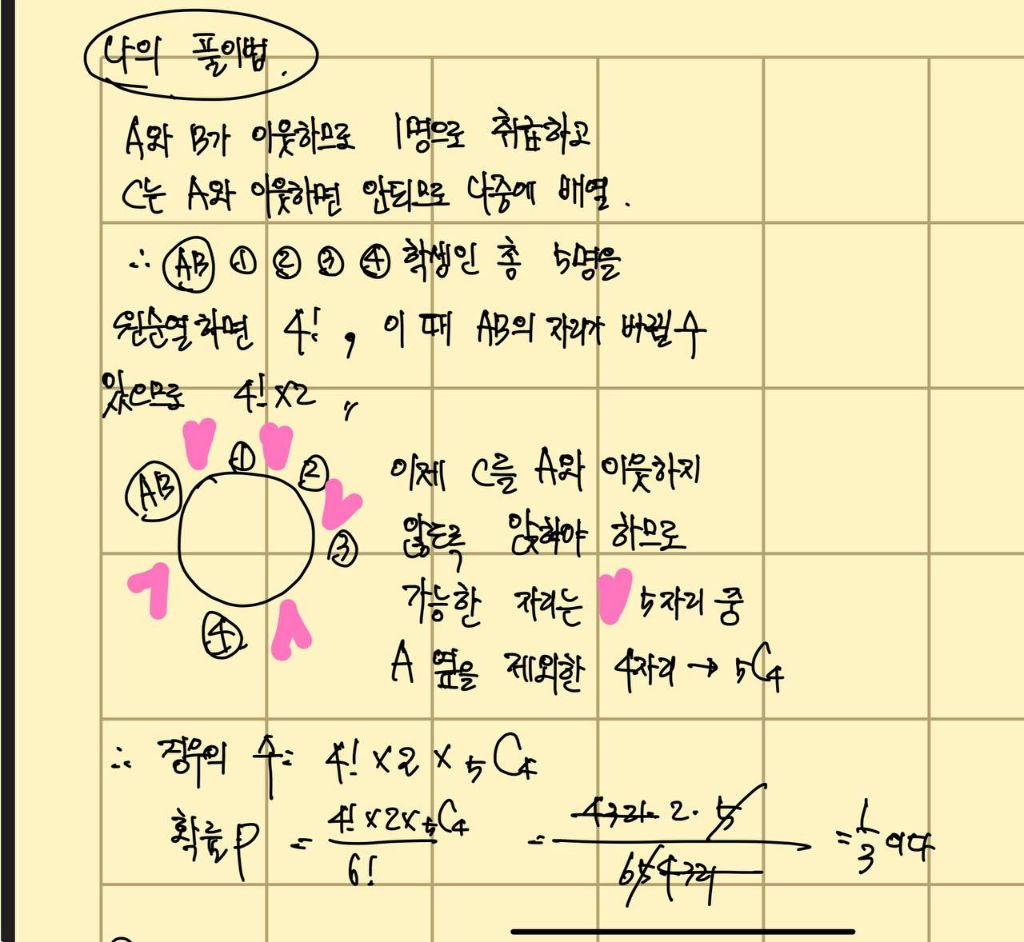 나의 풀이법.
A와 B가 이웃하므로 1명으로 취급하고
C는 A와 이웃하면 안되므로 나중에 배열.
∴ AB ① ② ③ ④ 학생인 총 5명을
원순열하면 4!, 이 때 AB의 자리가 바뀔 수
있으므로 4!×2 〃
AB ① ② ③ ④
이제 C를 A와 이웃하지
않도록 앉혀야 하므로
가능한 자리는 5자리 중
A 옆을 제외한 4자리 → ₅C₄
∴ 경우의 수 = 4! × 2 × ₅C₄
확률 P = 4!×2×₅C₄ / 6! = 4·3·2·1·2·5 / 6·5·4·3·2·1 = 1/3 이다